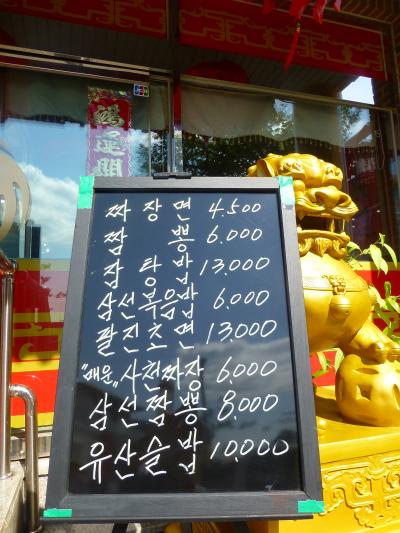 짜장면 4.500
짬뽕 6.000
잡탕밥 13,000
삼선볶음밥 6.000
팔진초면 13,000
"매운" 사천짜장 6,000
삼선짬뽕 8,000
유산슬밥 10,000
JCB